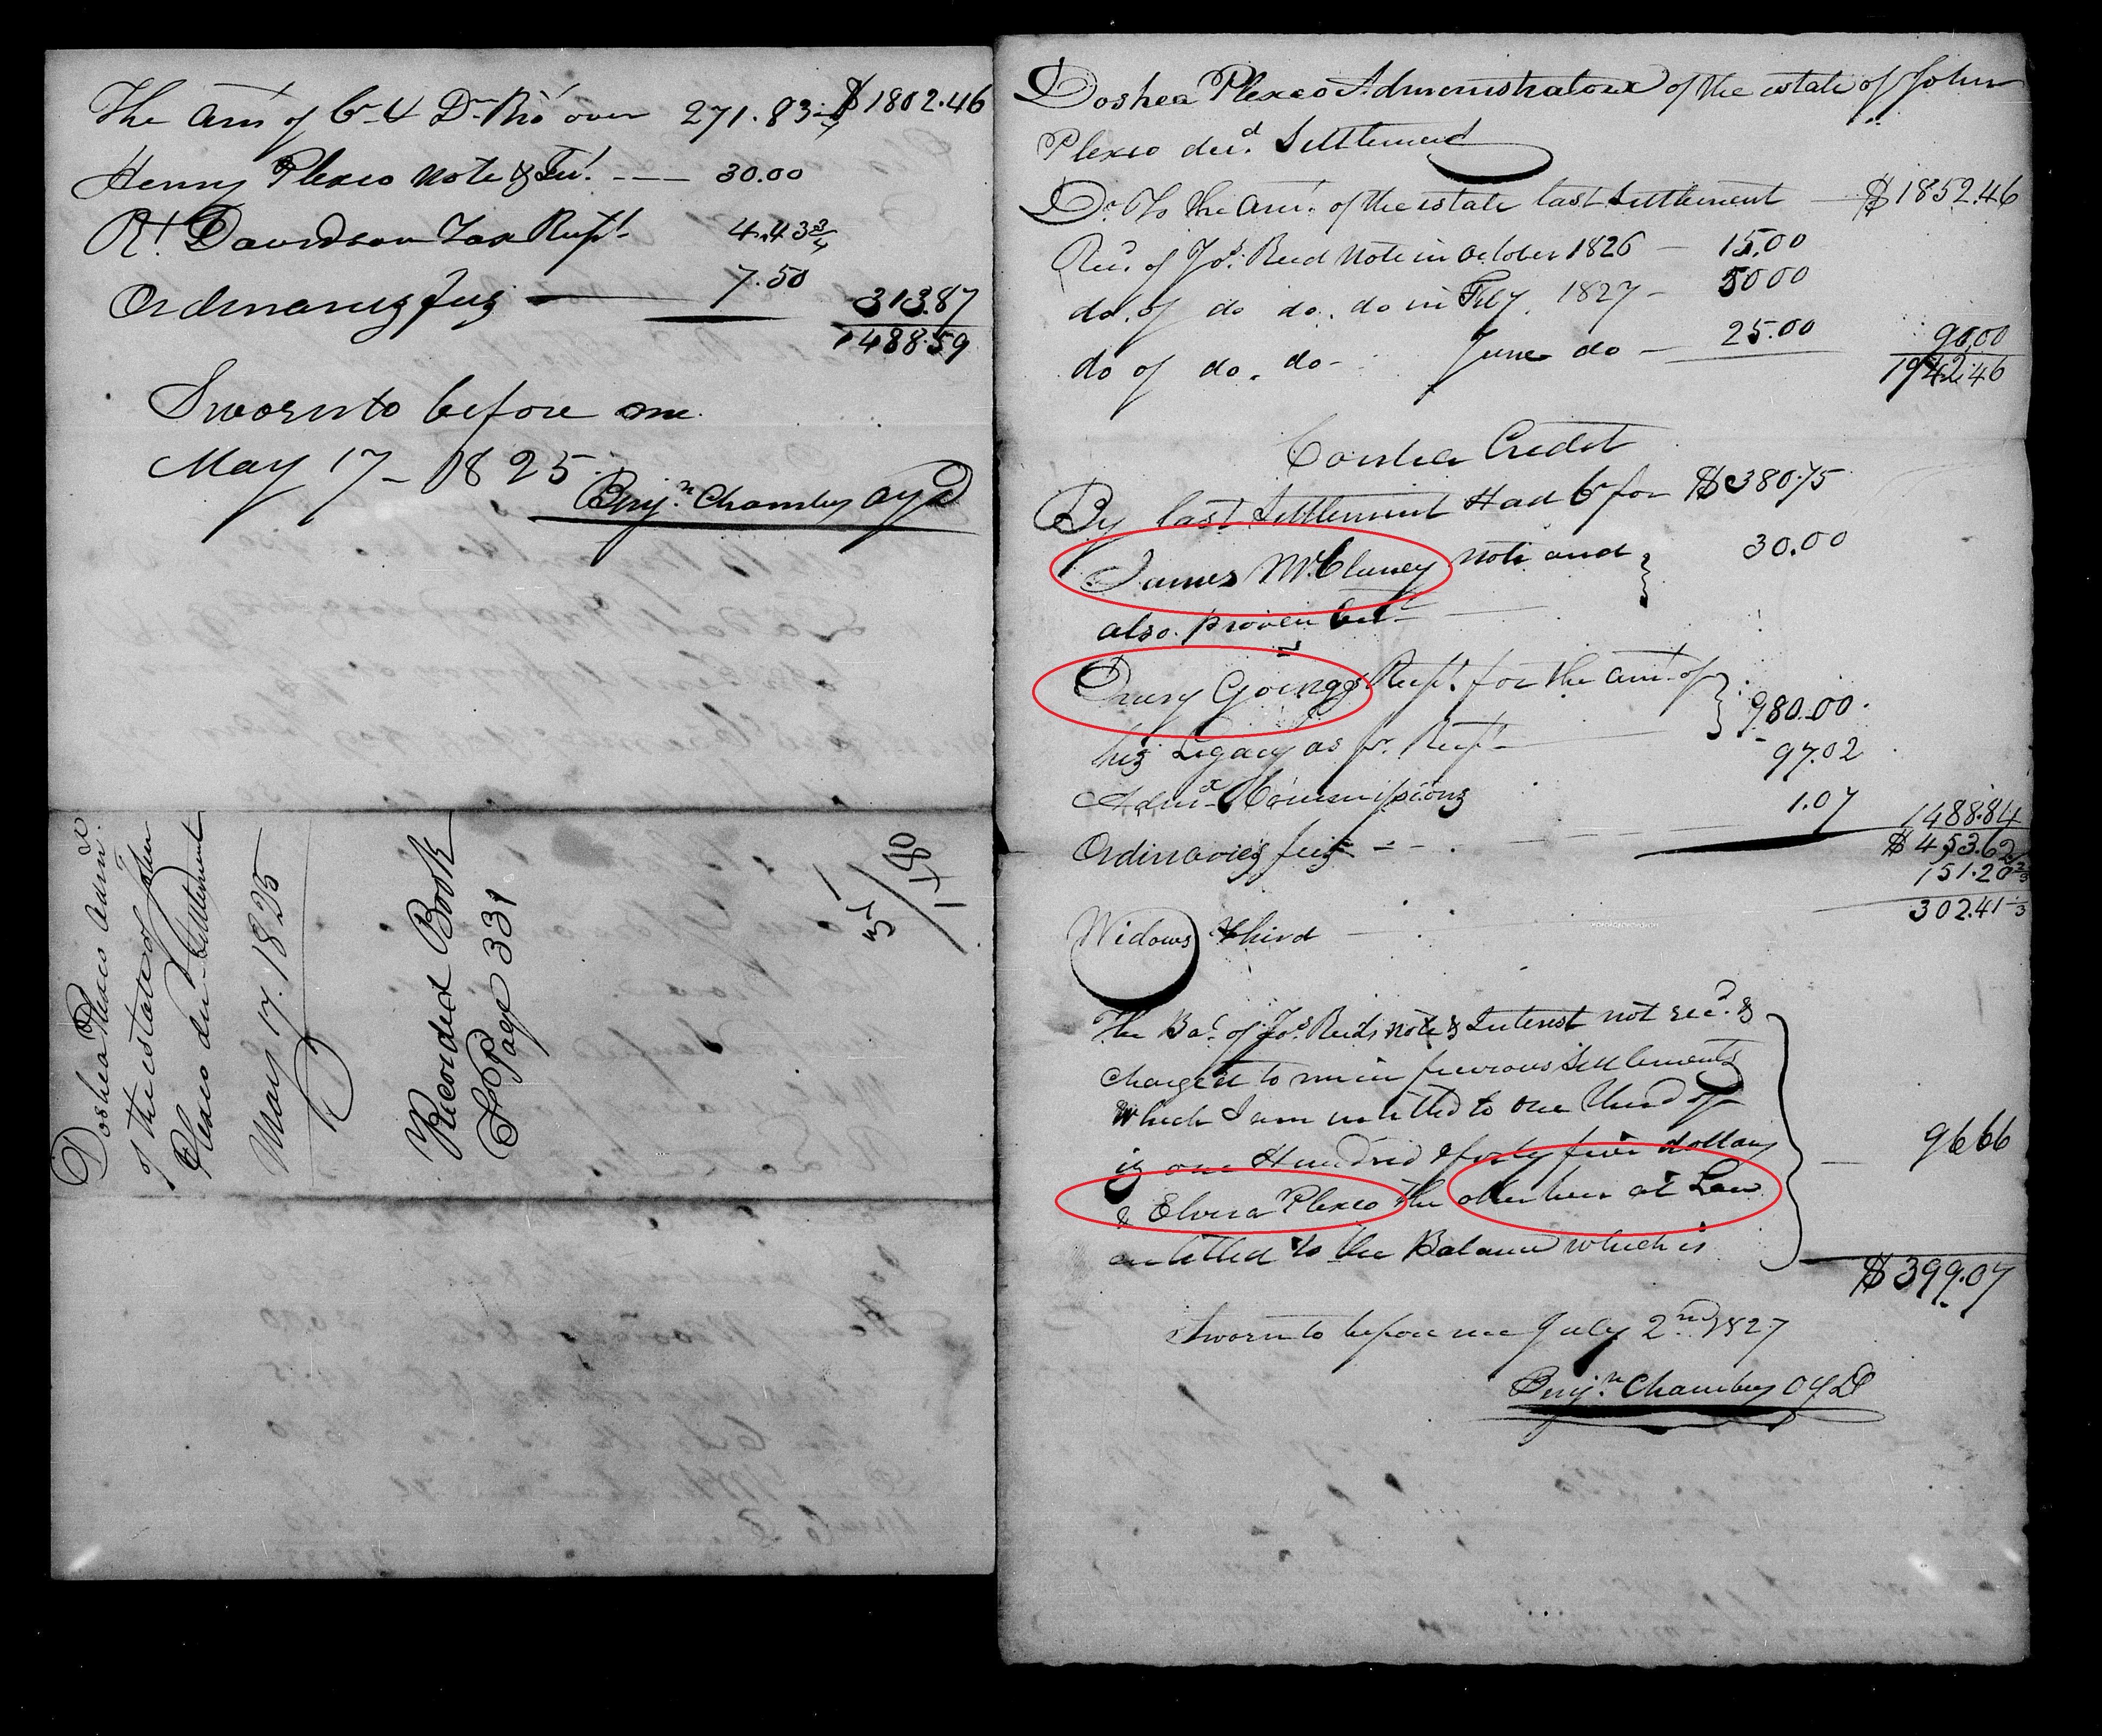 The Amt of Cr & Dr Bro' over 271.83 3/4 $1802.46
Henry Plexco Note & Int. 30.00
Rt. Davidson Tax Rcpt. 4.43 3/4
Ordinarys fees 7.50 313.87
1488.59
Sworn to before me
May 17 - 1825
Benjn. Chambers OYD
Doshea Plexco Admx.
of the estate of John
Plexco decd Settlement
May 17. 1825
Recorded Book
Page 331
Doshea Plexco Administratrix of the estate of John
Plexco decd. Settlement
Dr. To the Amt. of the estate last Settlement $1852.46
Recd. of Jos. Reed Note in October 1826 15.00
do. of do do. do in Feby. 1827 - 50.00
do of do. do - June do - 25.00 90.00
1942.46
Contra Credit
By last Settlement Had Cr for $380.75
James McCluney note and 30.00
also proven
Drury Goings Rcpt. for the amt. of
his Legacy as pr. Rcpt. 980.00
Admx Commissions 97.02
Ordinaries fees 1.07 1488.84
$453.62
151.20 2/3
302.41 1/3
Widows third
The Bal. of Jos. Reids note & Interest not recd. &
charged to me in previous Settlements
Which I am intitled to one third of
is one Hundred & forty five dollars 96.66
& Elvira Plexco the other heir at Law
entitled to the Balance which is
$399.07
Sworn to before me July 2nd 1827
Benjn. Chambers OYD